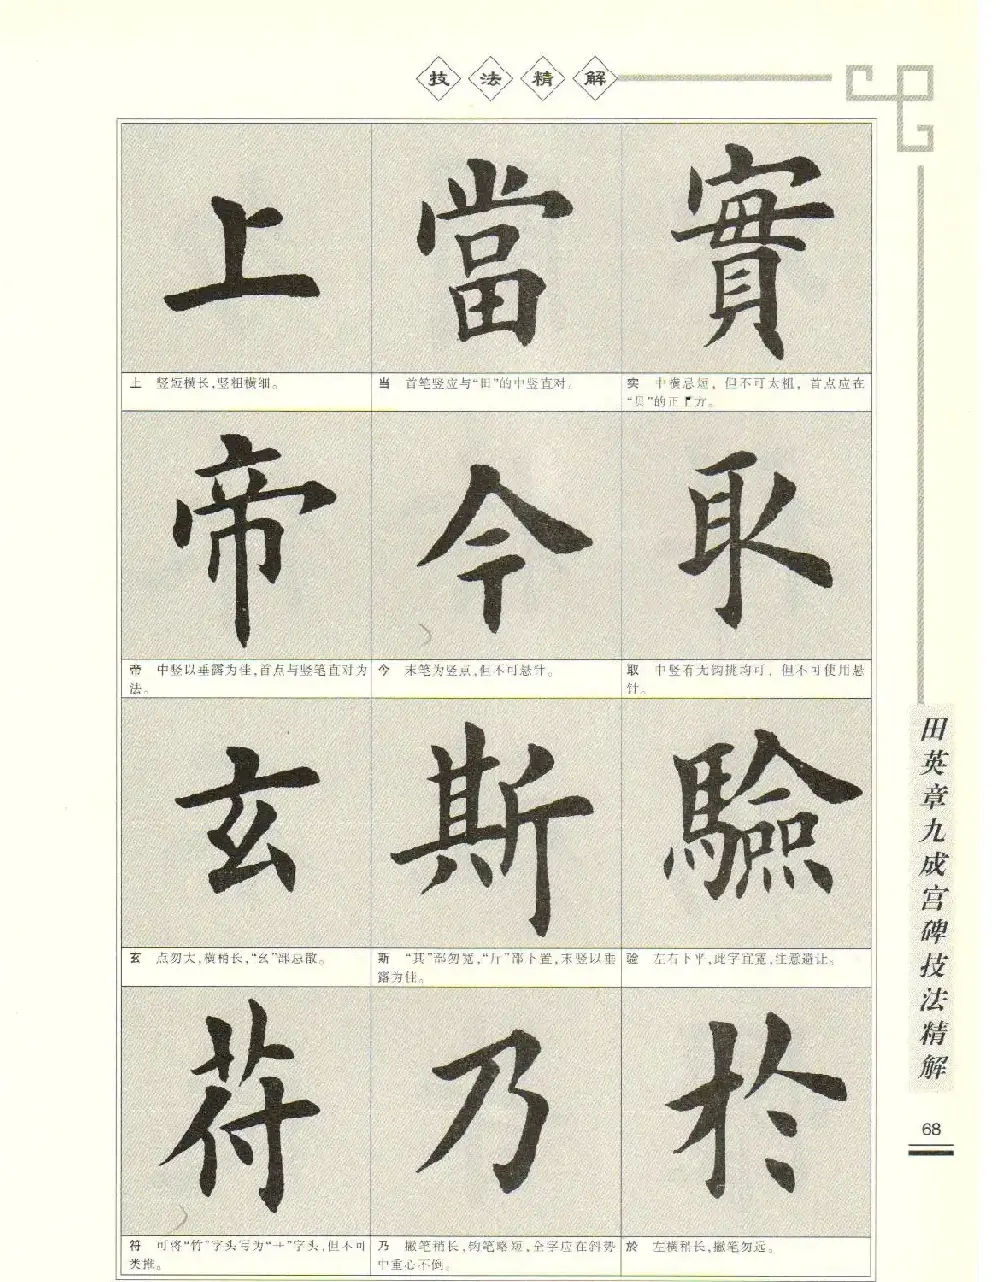 技法精解
上 當 實
上 竖短横长,竖粗横细。
当 首笔竖应与“田”的中竖直对。
实 中横忌短,但不可太粗,首点应在
“贝”的正上方。
帝 今 取
帝 中竖以垂露为佳,首点与竖笔直对为
法。
今 末笔为竖点,但不可悬针。
取 中竖有无钩挑均可,但不可使用悬
针。
玄 斯 驗
玄 点勿大,横稍长,“幺”部忌散。
斯 “其”部勿宽,“斤”部下置,末竖以垂
露为佳。
验 左右下平,此字宜宽,注意避让。
符 乃 於
符 可将“竹”字头写为“艹”字头,但不可
类推。
乃 撇笔稍长,钩笔略短,全字应在斜势
中重心不倒。
於 左横稍长,撇笔勿远。
田英章九成宫碑技法精解
68